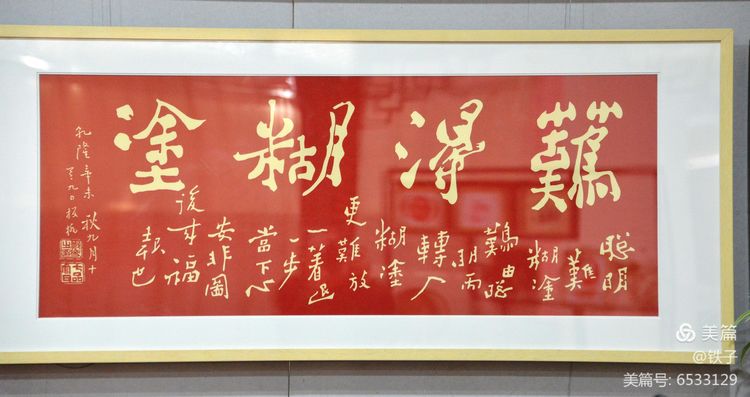 難得糊塗
聰明
難
糊塗
難由聰
明而
轉入
糊塗
更難放
一着退
一步
當下心
安非圖
後来福
報也
乾隆辛未秋九月十
有九日板橋
美篇
@铁子
美篇号: 6533129